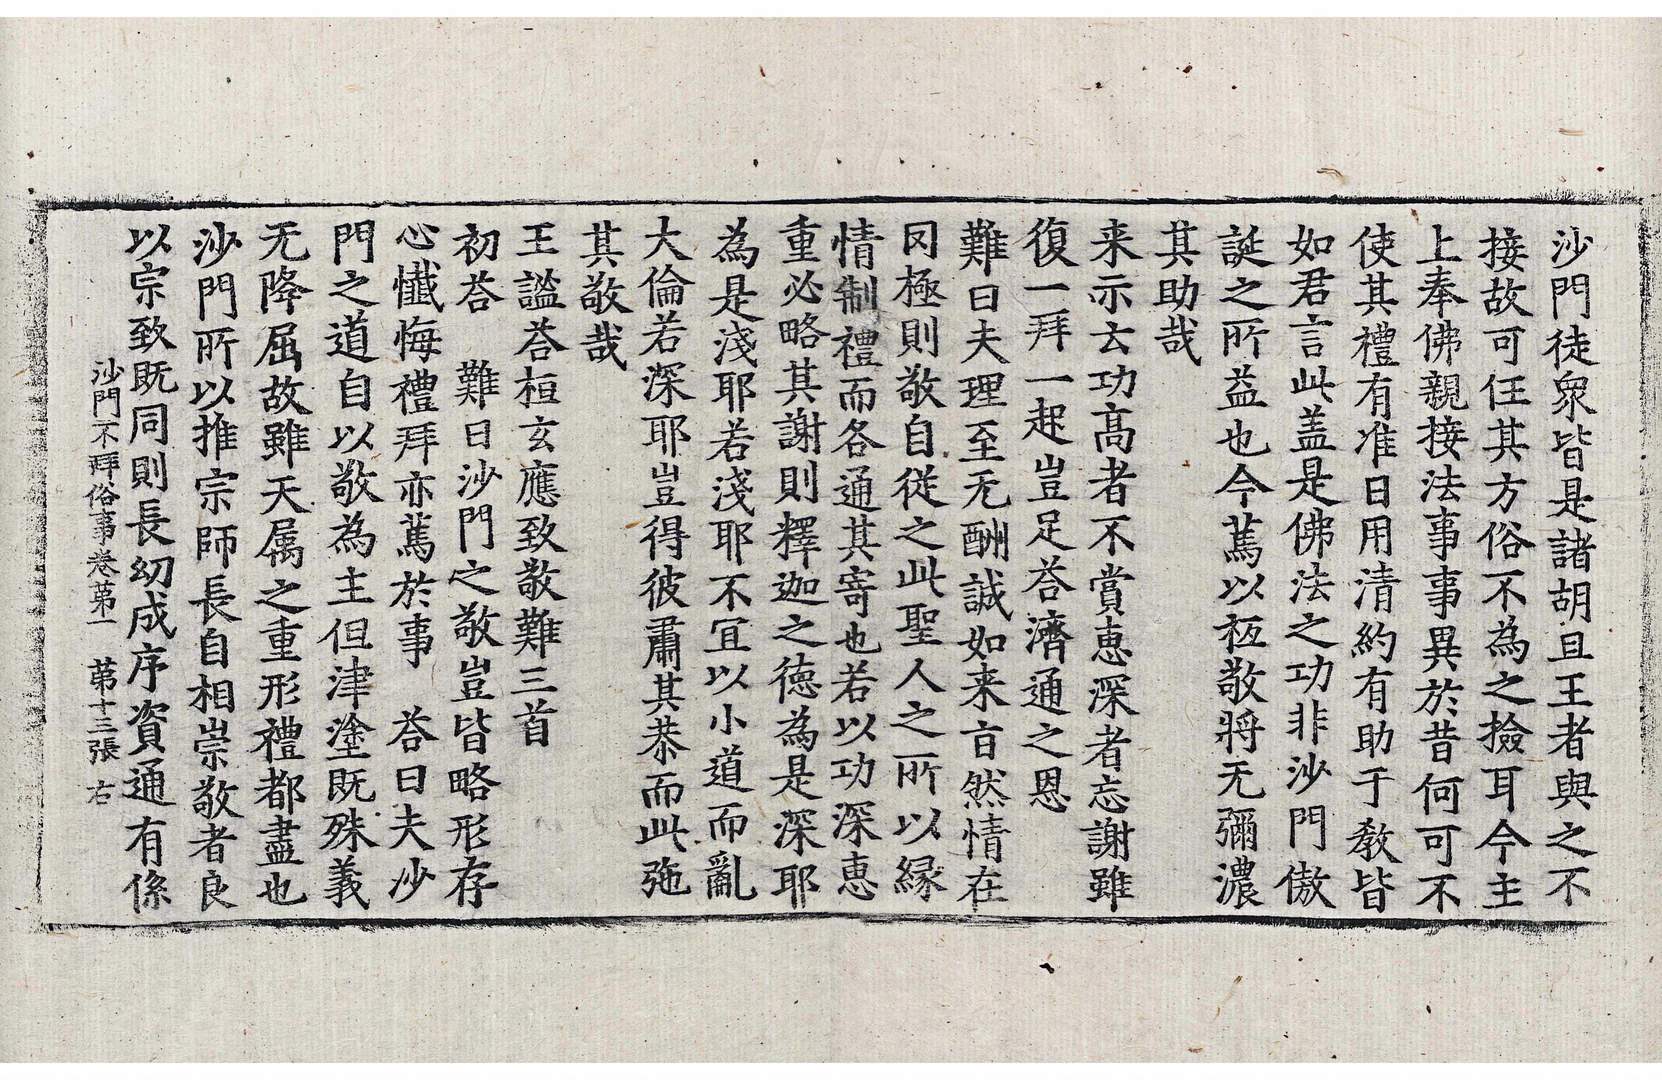 沙門徒衆皆是諸胡且王者與之不
接故可任其方俗不為之撿耳今主
上奉佛親接法事事異於昔何可不
使其禮有准日用清約有助于教皆
如君言此盖是佛法之功非沙門傲
誕之所益也今萬以袛敬將无彌濃
其助哉
来示云功高者不賞惠深者忘謝雖
復一拜一起豈足荅濟通之恩
難曰夫理至无酬誠如来言然情在
罔極則敬自従之此聖人之所以縁
情制禮而各通其寄也若以功深惠
重必略其謝則釋迦之德為是深耶
為是淺耶若淺耶不宜以小道而亂
大倫若深耶豈得彼肅其恭而此弛
其敬哉
王謐荅桓玄應致敬難三首
初荅 難曰沙門之敬豈皆略形存
心懺悔禮拜亦萬於事 荅曰夫沙
門之道自以敬為主但津塗既殊義
无降屈故雖天属之重形禮都盡也
沙門所以推宗師長自相崇敬者良
以宗致既同則長幼成序資通有係
沙門不拜俗事卷第一 第十三張 右